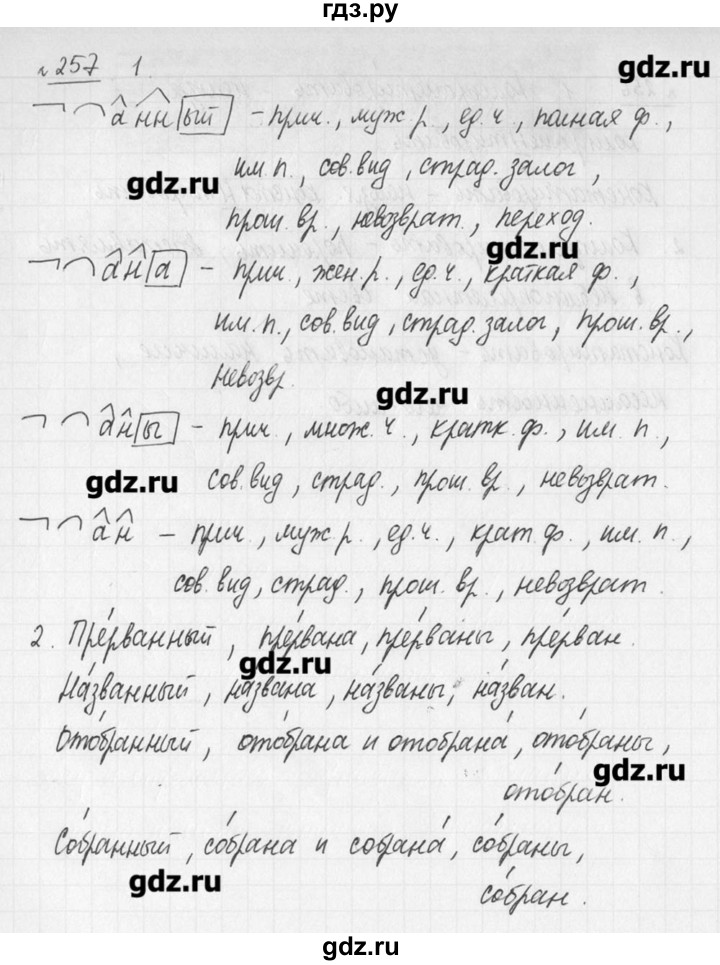 гдз.ру
№257 1.
анный – прич., муж.р., ед.ч., полная ф.,
им.п., сов.вид, страд.залог,
gdz.ru
прош.вр., невозврат., переход.
gdz.ru
ана – прич., жен.р., ед.ч., краткая ф.,
им.п., сов.вид, страд.залог, прош.вр.,
невозвр.
gdz.ru
аны – прич., множ.ч., кратк.ф., им.п.,
gdz.ru
сов.вид, страд., прош.вр., невозврат.
gdz.ru
ан – прич., муж.р., ед.ч., крат.ф., им.п.,
сов.вид, страд., прош.вр., невозврат.
2. Пре́рванный, пре́рвана, пре́рваны, пре́рван.
gdz.ru
На́званный, на́звана, на́званы, на́зван.
Ото́бранный, ото́брана и отобрана́, ото́браны,
gdz.ru
ото́бран.
Со́бранный, со́брана и собрана́, со́браны,
gdz.ru
со́бран.
gdz.ru